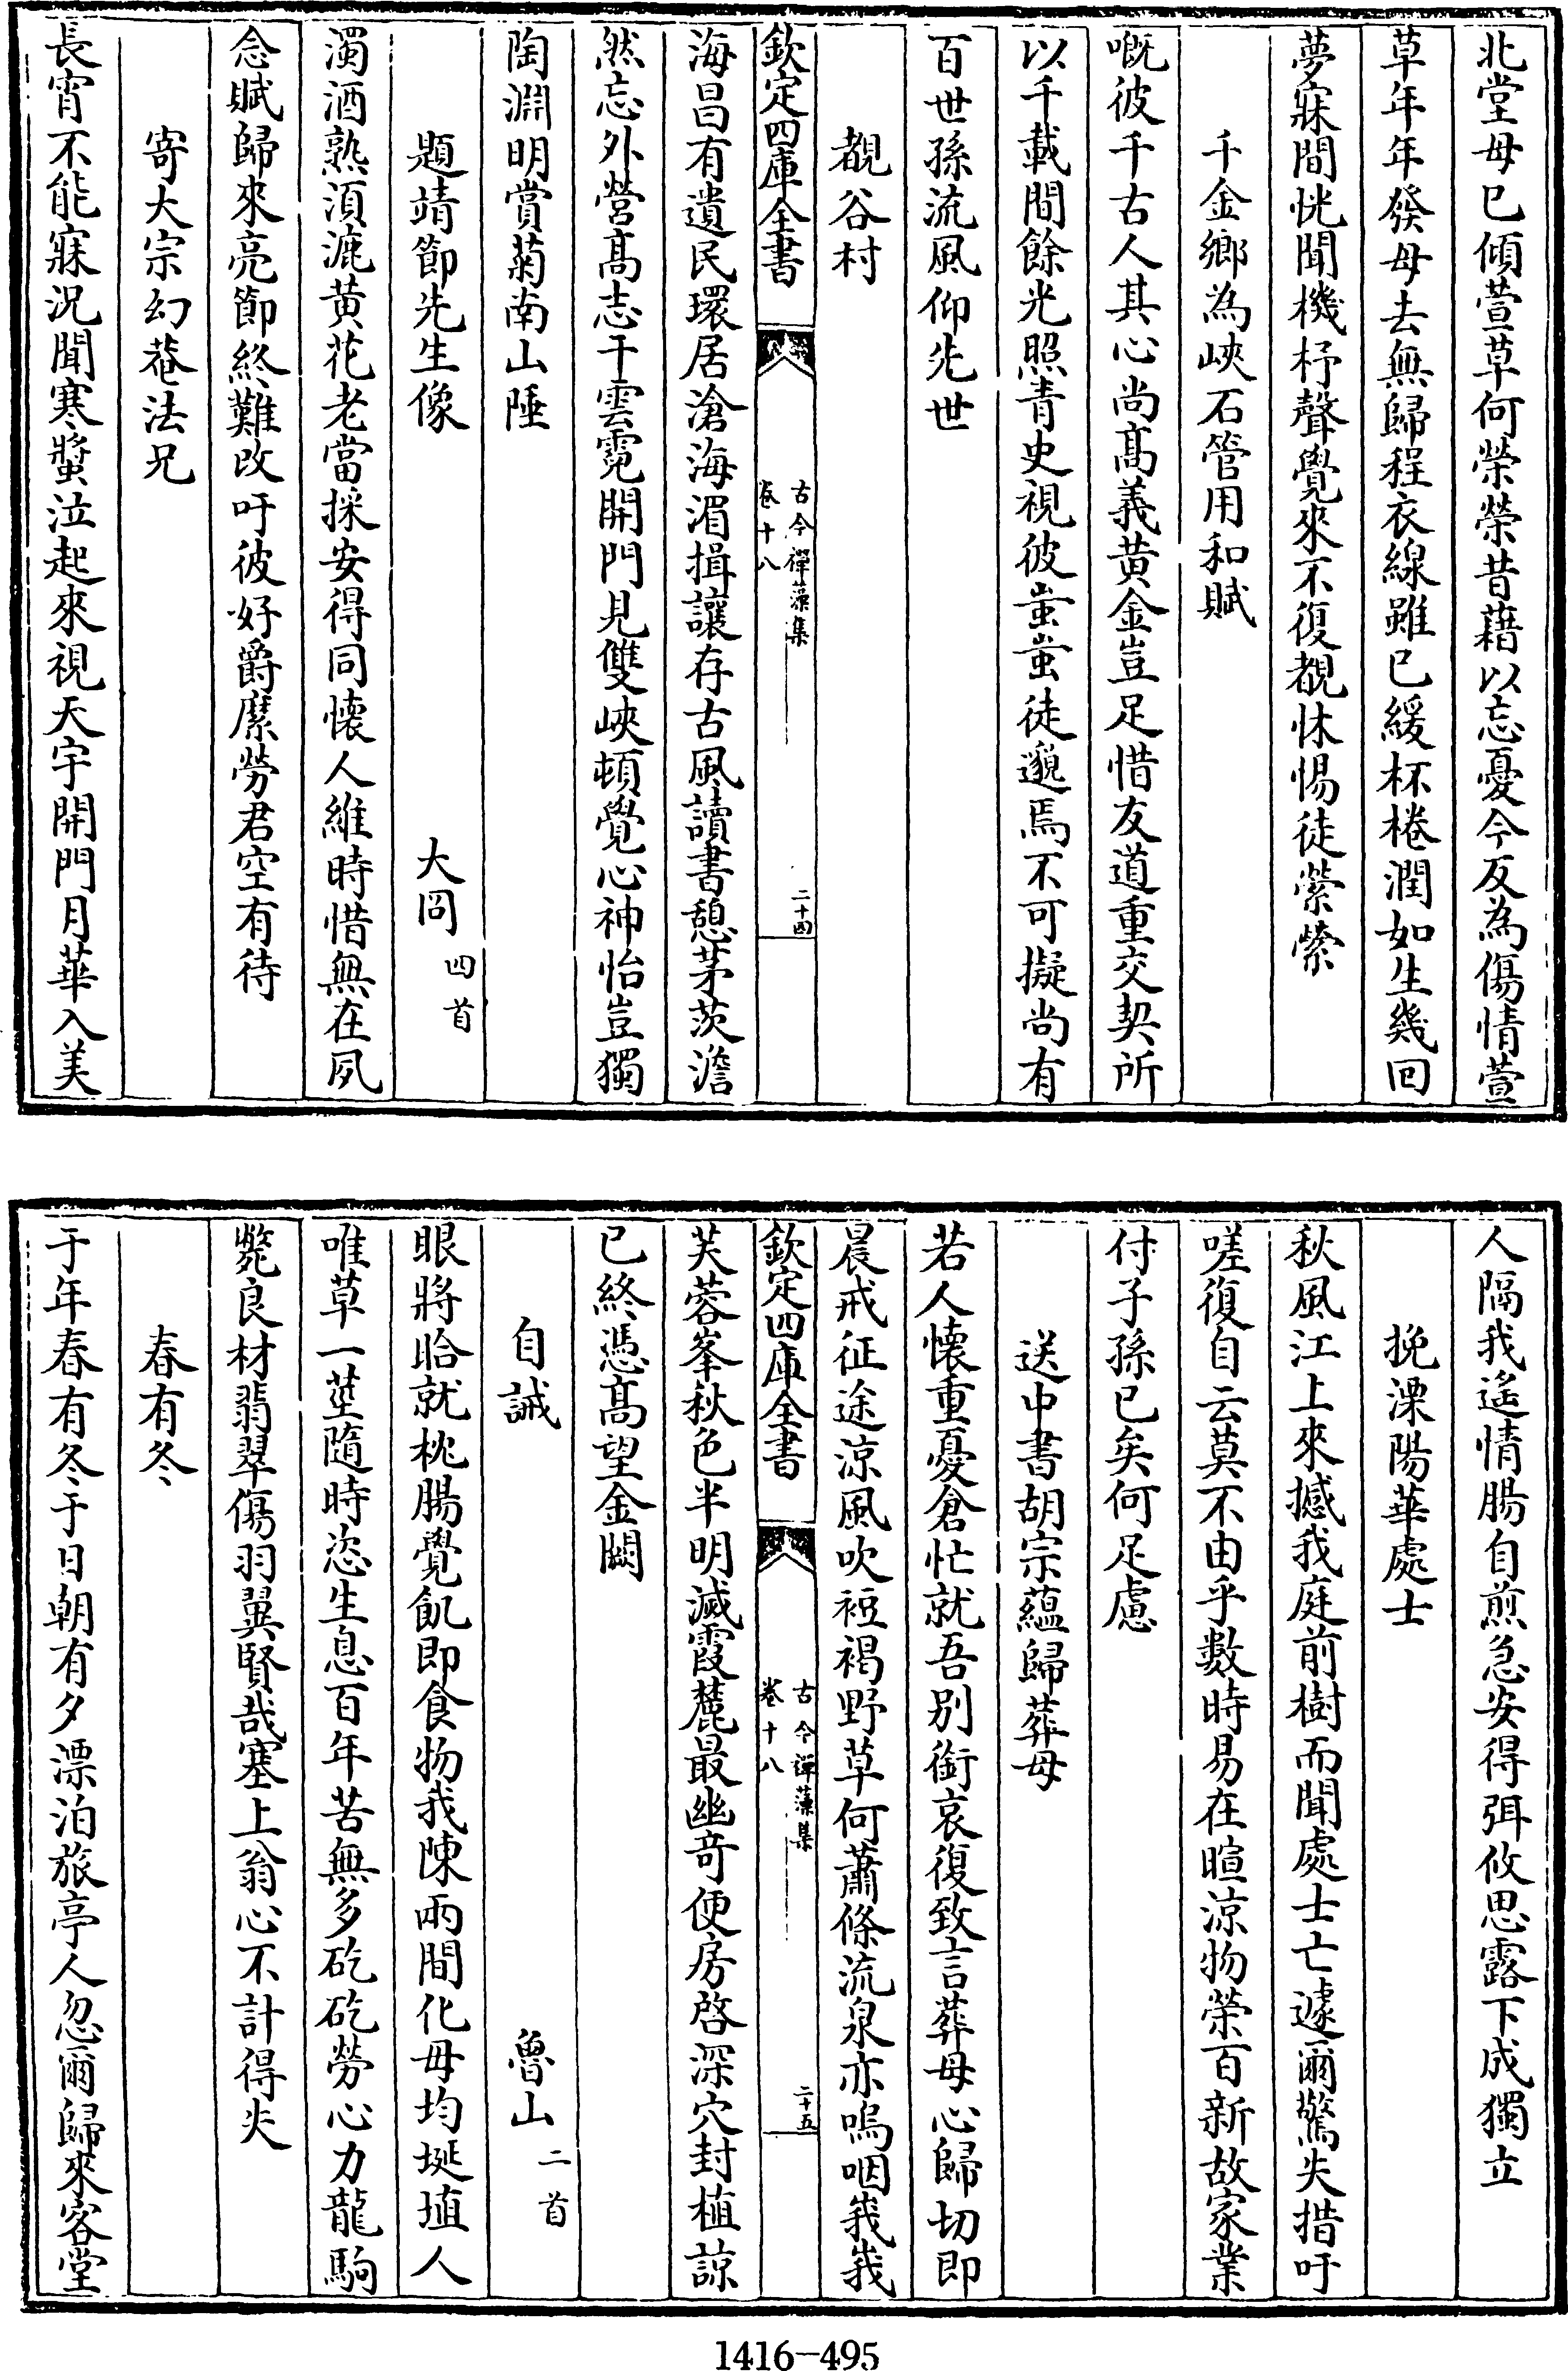 北堂母已傾萱草何榮榮昔藉以忘憂今反為傷情萱
草年年發母去無歸程衣線雖已緩杯棬潤如生幾回
夢寐間恍聞機杼聲覺來不復覩怵惕徒縈縈
千金鄉為峽石管用和賦
嘅彼千古人其心尚髙義黄金豈足惜友道重交契所
以千載間餘光照青史視彼蚩蚩徒邈焉不可擬尚有
百世孫流風仰先世
覩谷村
欽定四庫全書
古今禪藻集
卷十八
二十四
海昌有遺民環居滄海湄揖讓存古風讀書憩茅茨澹
然忘外營髙志干雲霓開門見雙峽頓覺心神怡豈獨
陶淵明賞菊南山陲
題靖節先生像
大同
四首
濁酒熟須漉黄花老當採安得同懷人維時惜無在夙
念賦歸來亮節終難改吁彼好爵縻勞君空有待
寄大宗幻菴法兄
長宵不能寐況聞寒螀泣起來視天宇開門月華入美
人隔我遙情腸自煎急安得弭攸思露下成獨立
挽溧陽華處士
秋風江上來撼我庭前樹而聞處士亡遽爾驚失措吁
嗟復自云莫不由乎數時易在暄涼物榮百新故家業
付子孫已矣何足慮
送中書胡宗蘊歸葬母
若人懷重憂倉忙就吾别銜哀復致言葬母心歸切即
晨戒征途涼風吹裋褐野草何蕭條流泉亦嗚咽峩峩
欽定四庫全書
古今禪藻集
卷十八
二十五
芙蓉峯秋色半明滅霞麓最幽奇便房啓深穴封植諒
已終憑髙望金闕
自誡
魯山
二首
眼將眙就枕腸覺飢即食物我陳兩間化毋均埏埴人
唯草一莖隨時恣生息百年苦無多矻矻勞心力龍駒
斃良材翡翠傷羽翼賢哉塞上翁心不計得失
春有冬
于年春有冬于日朝有夕漂泊旅亭人忽爾歸來客堂
1416-495